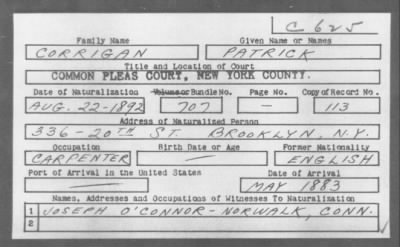 C 625
Family Name Given Name or Names
CORRIGAN PATRICK
Title and Location of Court
COMMON PLEAS COURT, NEW YORK COUNTY.
Date of Naturalization Volume or Bundle No. Page No. Copy of Record No.
AUG. 22-1892 707 — 113
Address of Naturalized Person
336-20TH ST. BROOKLYN, N.Y.
Occupation Birth Date or Age Former Nationality
CARPENTER — ENGLISH
Port of Arrival in the United States Date of Arrival
— MAY 1883
Names, Addresses and Occupations of Witnesses To Naturalization
1 JOSEPH O'CONNOR-NORWALK, CONN.
2